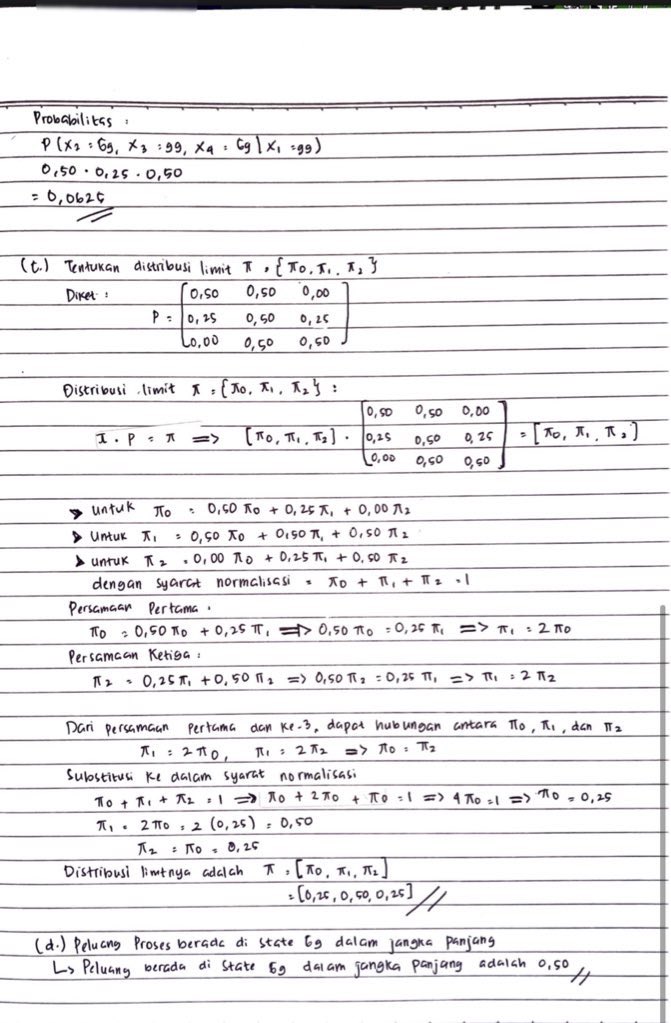 Probabilitas :
P(X₂ = Gg, X₃ = gg, X₄ = Gg | X₁ = gg)
0,50 · 0,25 · 0,50
= 0,0625
(c.) Tentukan distribusi limit π = {π₀, π₁, π₂}
Diket :
P = [0,50 0,50 0,00
0,25 0,50 0,25
0,00 0,50 0,50]
Distribusi limit π = {π₀, π₁, π₂} :
π · P = π => [π₀, π₁, π₂] · [0,50 0,50 0,00
0,25 0,50 0,25
0,00 0,50 0,50] = [π₀, π₁, π₂]
➤ Untuk π₀ = 0,50 π₀ + 0,25 π₁ + 0,00 π₂
➤ Untuk π₁ = 0,50 π₀ + 0,50 π₁ + 0,50 π₂
➤ Untuk π₂ = 0,00 π₀ + 0,25 π₁ + 0,50 π₂
dengan syarat normalisasi = π₀ + π₁ + π₂ = 1
Persamaan Pertama :
π₀ = 0,50 π₀ + 0,25 π₁ => 0,50 π₀ = 0,25 π₁ => π₁ = 2 π₀
Persamaan Ketiga :
π₂ = 0,25 π₁ + 0,50 π₂ => 0,50 π₂ = 0,25 π₁ => π₁ = 2 π₂
Dari persamaan pertama dan ke-3, dapat hubungan antara π₀, π₁, dan π₂
π₁ = 2 π₀, π₁ = 2 π₂ => π₀ = π₂
Substitusi ke dalam syarat normalisasi
π₀ + π₁ + π₂ = 1 => π₀ + 2π₀ + π₀ = 1 => 4π₀ = 1 => π₀ = 0,25
π₁ = 2π₀ = 2 (0,25) = 0,50
π₂ = π₀ = 0,25
Distribusi limitnya adalah π = [π₀, π₁, π₂]
= [0,25, 0,50, 0,25]
(d.) Peluang Proses berada di state Gg dalam jangka panjang
↳ Peluang berada di state Gg dalam jangka panjang adalah 0,50